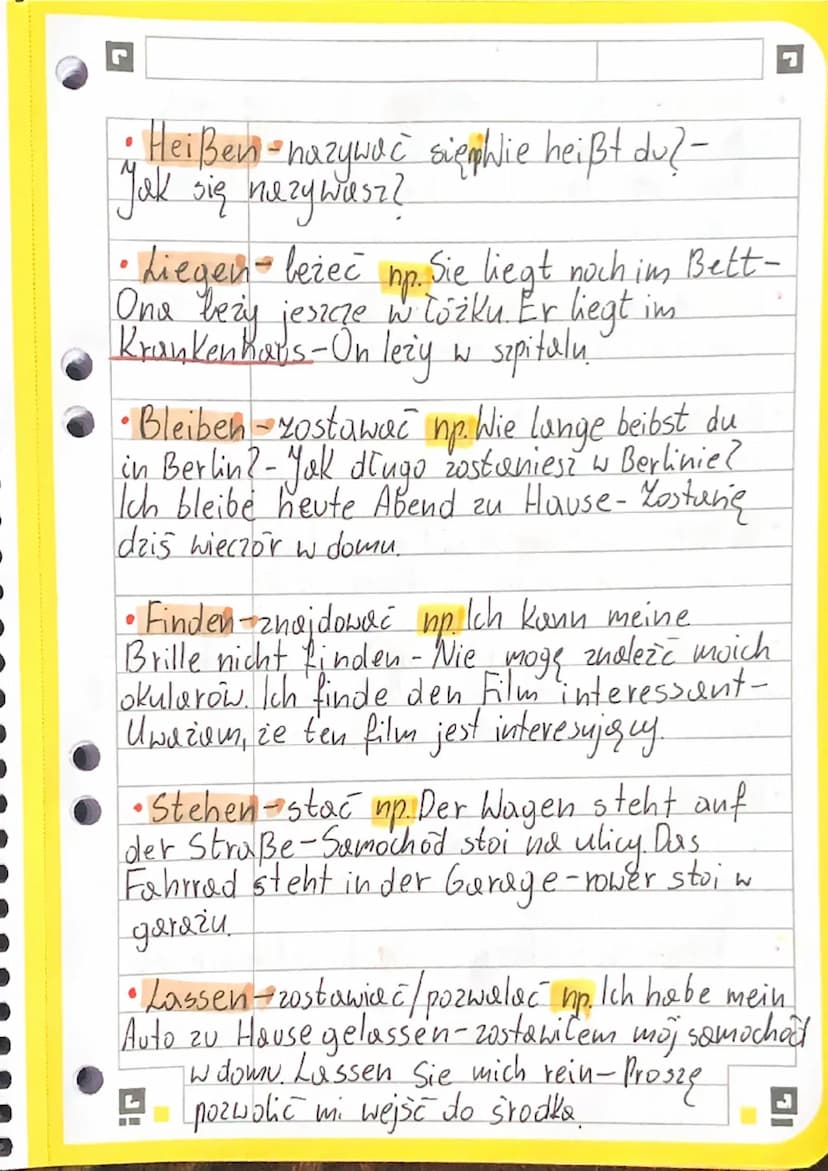 • Heißen - nazywać się np Wie heißt du? -
Jak się nazywasz?
• Liegen - leżeć np. Sie liegt noch im Bett -
Ona leży jeszcze w łóżku. Er liegt im
Krankenhaus - On leży w szpitalu.
• Bleiben - zostawać np. Wie lange beibst du
in Berlin? - Jak długo zostaniesz w Berlinie?
Ich bleibe heute Abend zu Hause - Zostanię
dziś wieczór w domu.
• Finden - znajdować np. Ich kann meine
Brille nicht finden - Nie mogę znaleźć moich
okularów. Ich finde den Film interessant -
Uważam, że ten film jest interesujący.
• Stehen - stać np. Der Wagen steht auf
der Straße - Samochód stoi na ulicy. Das
Fahrrad steht in der Garage - rower stoi w
garażu.
• Lassen - zostawiać/pozwalać np. Ich habe mein
Auto zu Hause gelassen - zostawiłem mój samochód
w domu. Lassen Sie mich rein - Proszę
pozwolić mi wejść do środka.